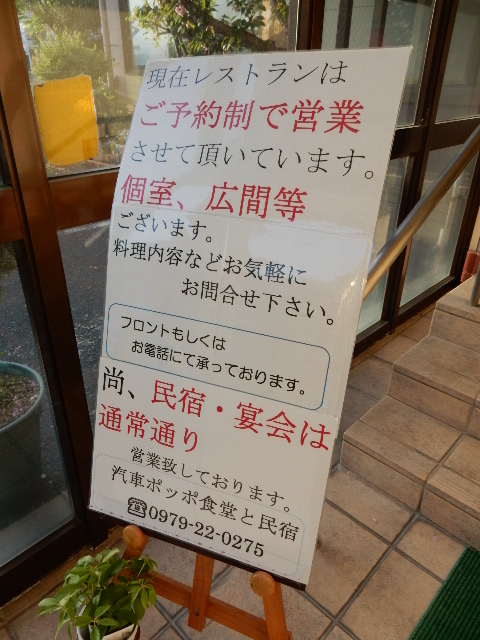 現在レストランは
ご予約制で営業
させて頂いています。
個室、広間等
ございます。
料理内容などお気軽に
お問合せ下さい。
フロントもしくは
お電話にて承っております。
尚、民宿・宴会は
通常通り
営業致しております。
汽車ポッポ食堂と民宿
☎0979-22-0275